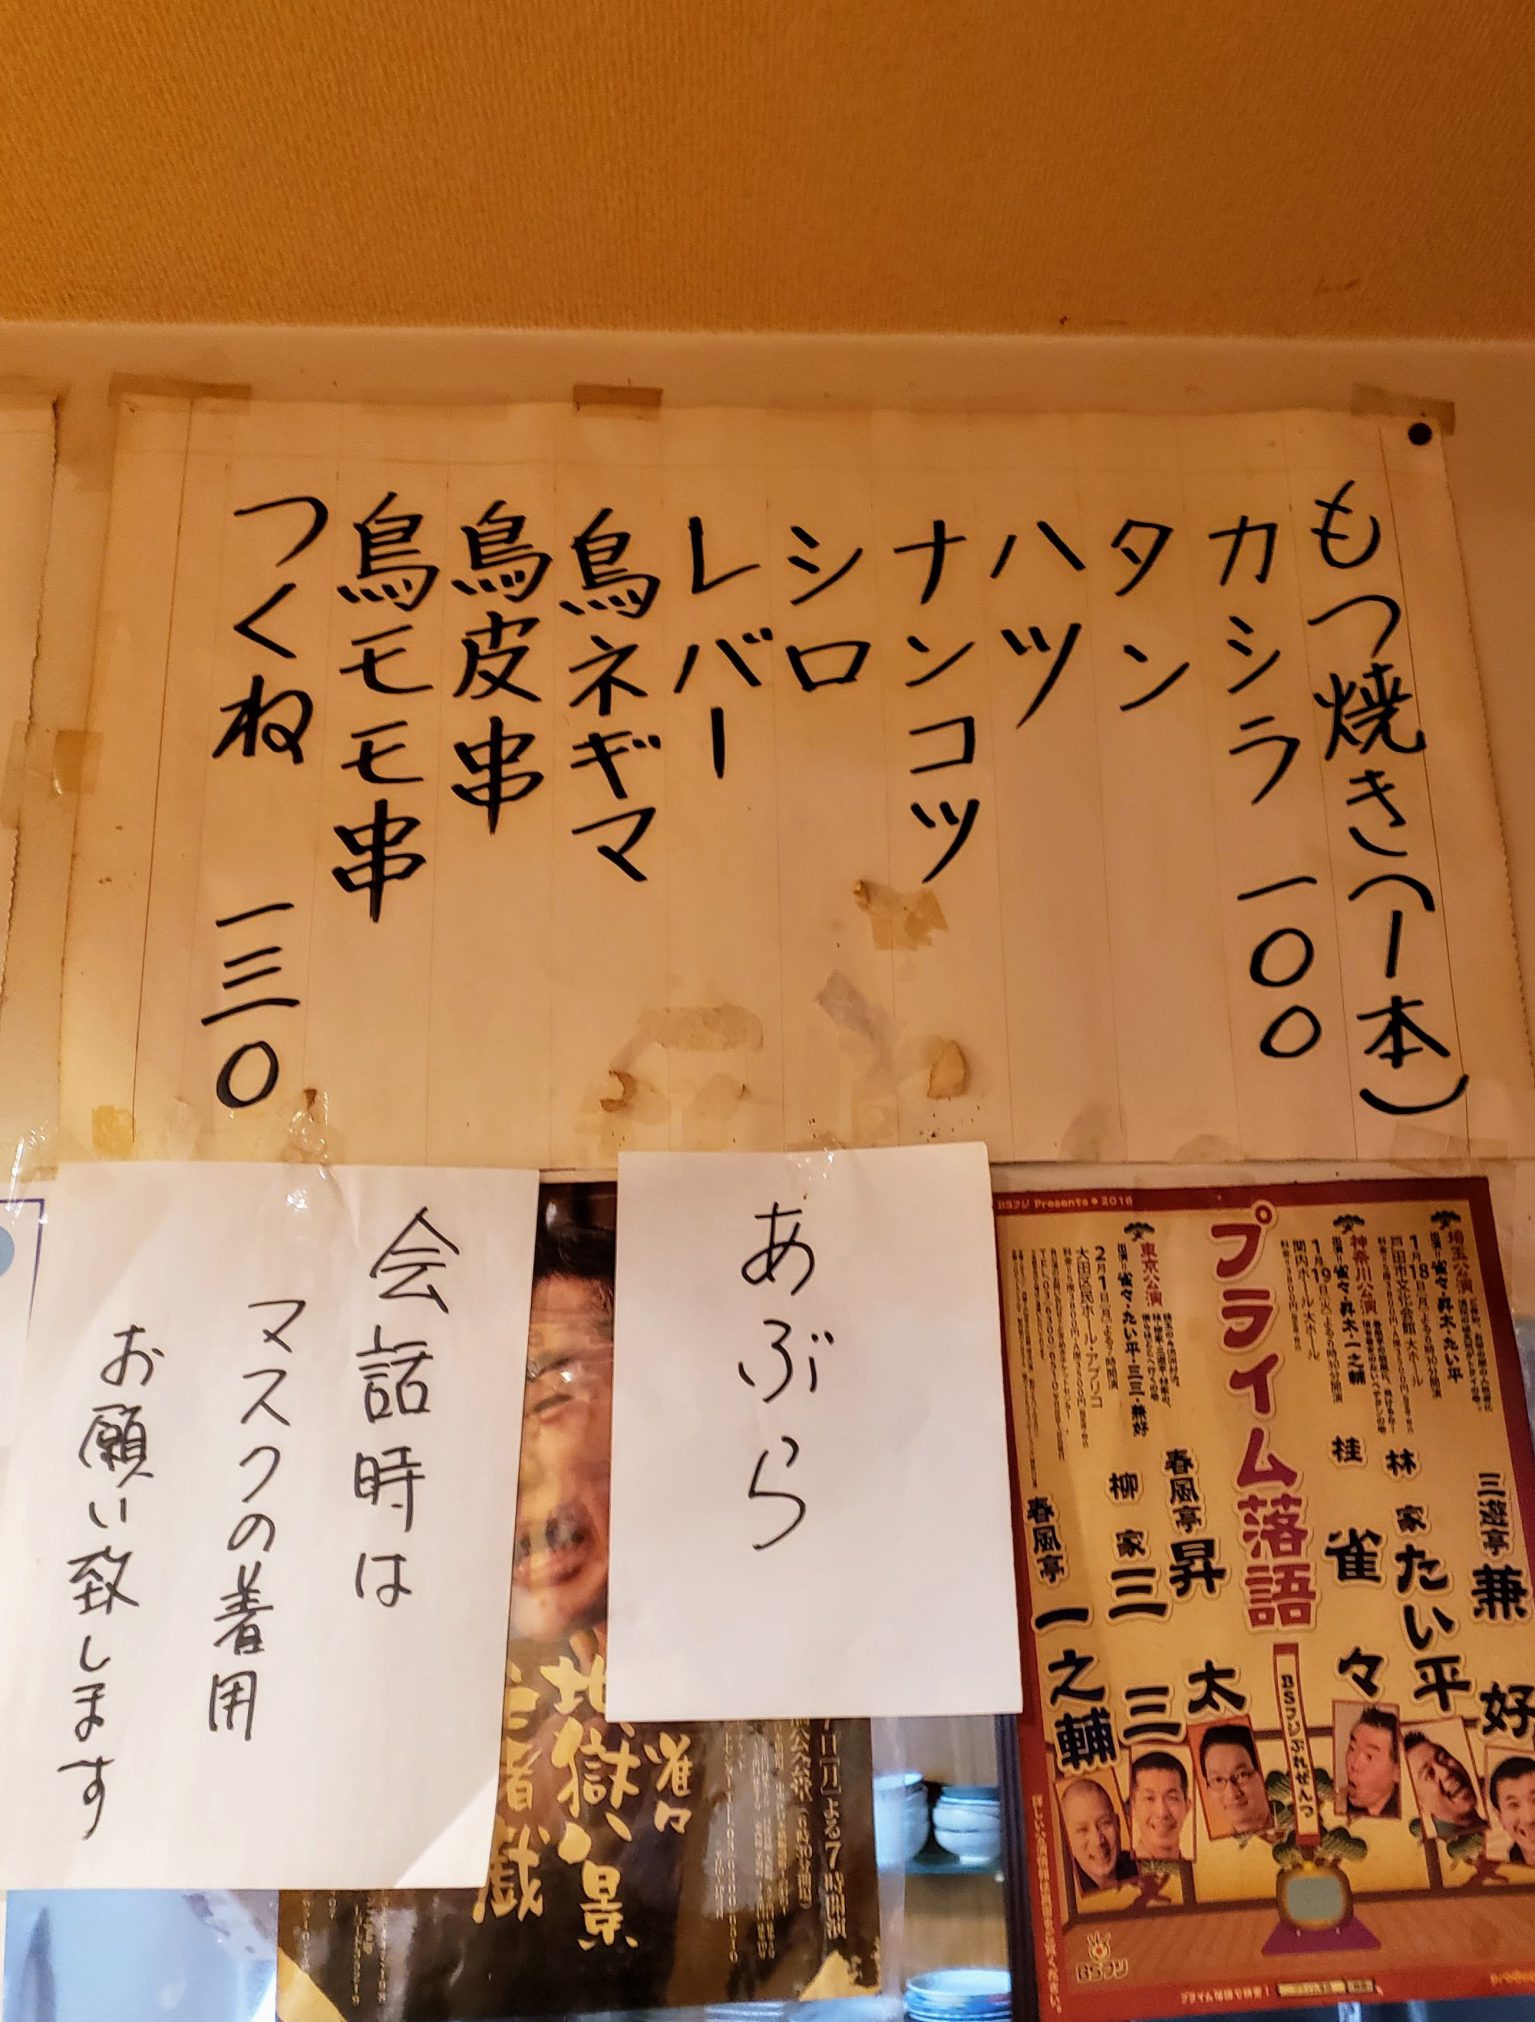 もつ焼き(一本)
カシラ 一〇〇
タン
ハツ
ナンコツ
シロ
レバー
鳥ネギマ
鳥皮串
鳥モモ串
つくね 一三〇
あぶら
会話時は
マスクの着用
お願い致します
BSフジ Presents 2016
プライム落語
BSフジぷれぜんつ
埼玉公演
1月18日(月)よる6時
戸田市文化会館 大ホール
神奈川公演
1月19日(火)よる6時
関内ホール 大ホール
東京公演
2月1日(月)よる7時開演
大田区民ホール・アプリコ
三遊亭 兼好
林家 たい平
桂 雀々
春風亭 昇太
柳家 三三
春風亭 一之輔
BSフジ
雀々
地獄八景
亡者戯
[月]よる7時開演